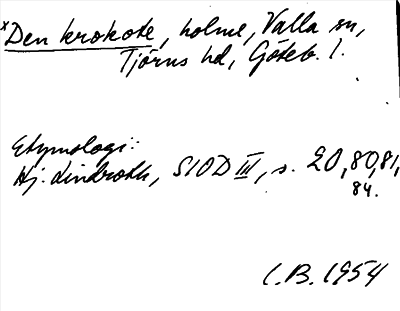 x Den krokote, holme, Valla sn,
Tjörns hd, Göteb. l.
Etymologi:
Hj. Lindroth, SIOD III, s. 20, 80, 81,
84.
C.B. 1954